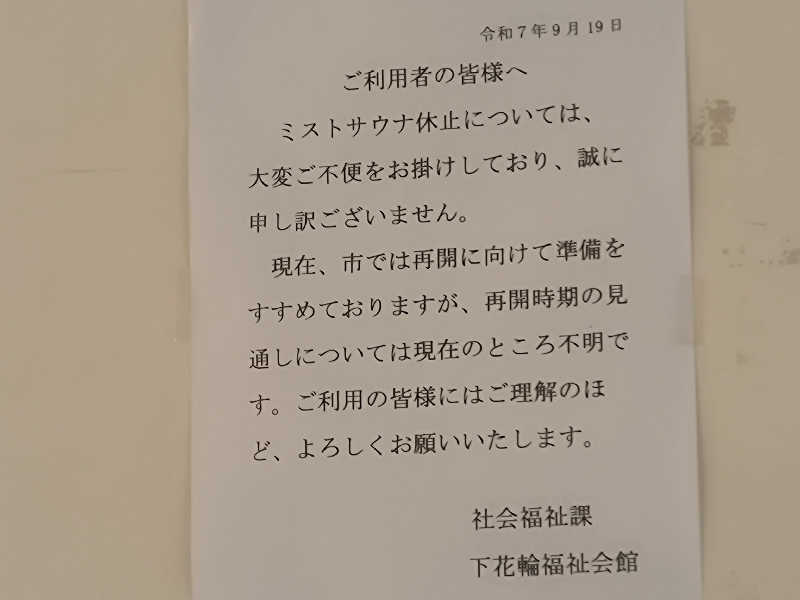 令和7年9月19日
ご利用者の皆様へ
ミストサウナ休止については、
大変ご不便をお掛けしており、誠に
申し訳ございません。
現在、市では再開に向けて準備を
すすめておりますが、再開時期の見
通しについては現在のところ不明で
す。ご利用の皆様にはご理解のほ
ど、よろしくお願いいたします。
社会福祉課
下花輪福祉会館